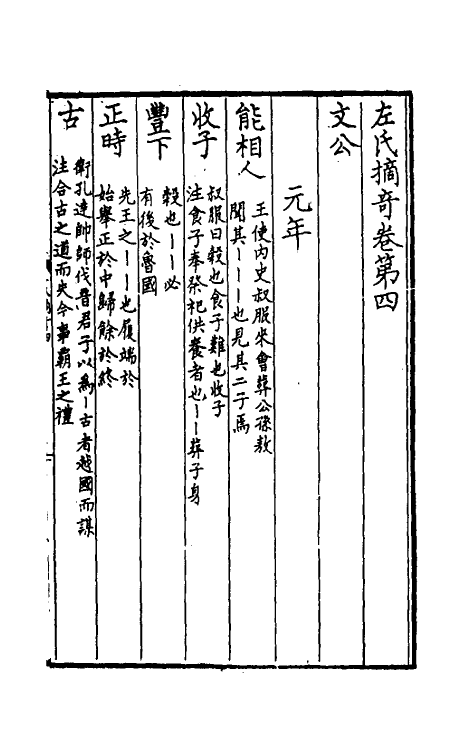 左氏摘奇卷第四
文公
元年
能相人
王使内史叔服來會葬公孫敖
聞其ーーー也見其二子焉
收子
叔服曰穀也食子難也收子
注食子奉祭祀供養者也ーー葬子身
豐下
穀也ーー必
有後於魯國
正時
先王之ーー也履端於
始舉正於中歸餘於終
古
衛孔達帥師伐晉君子以爲ー古者越國而謀
注合古之道而失今事霸王之禮